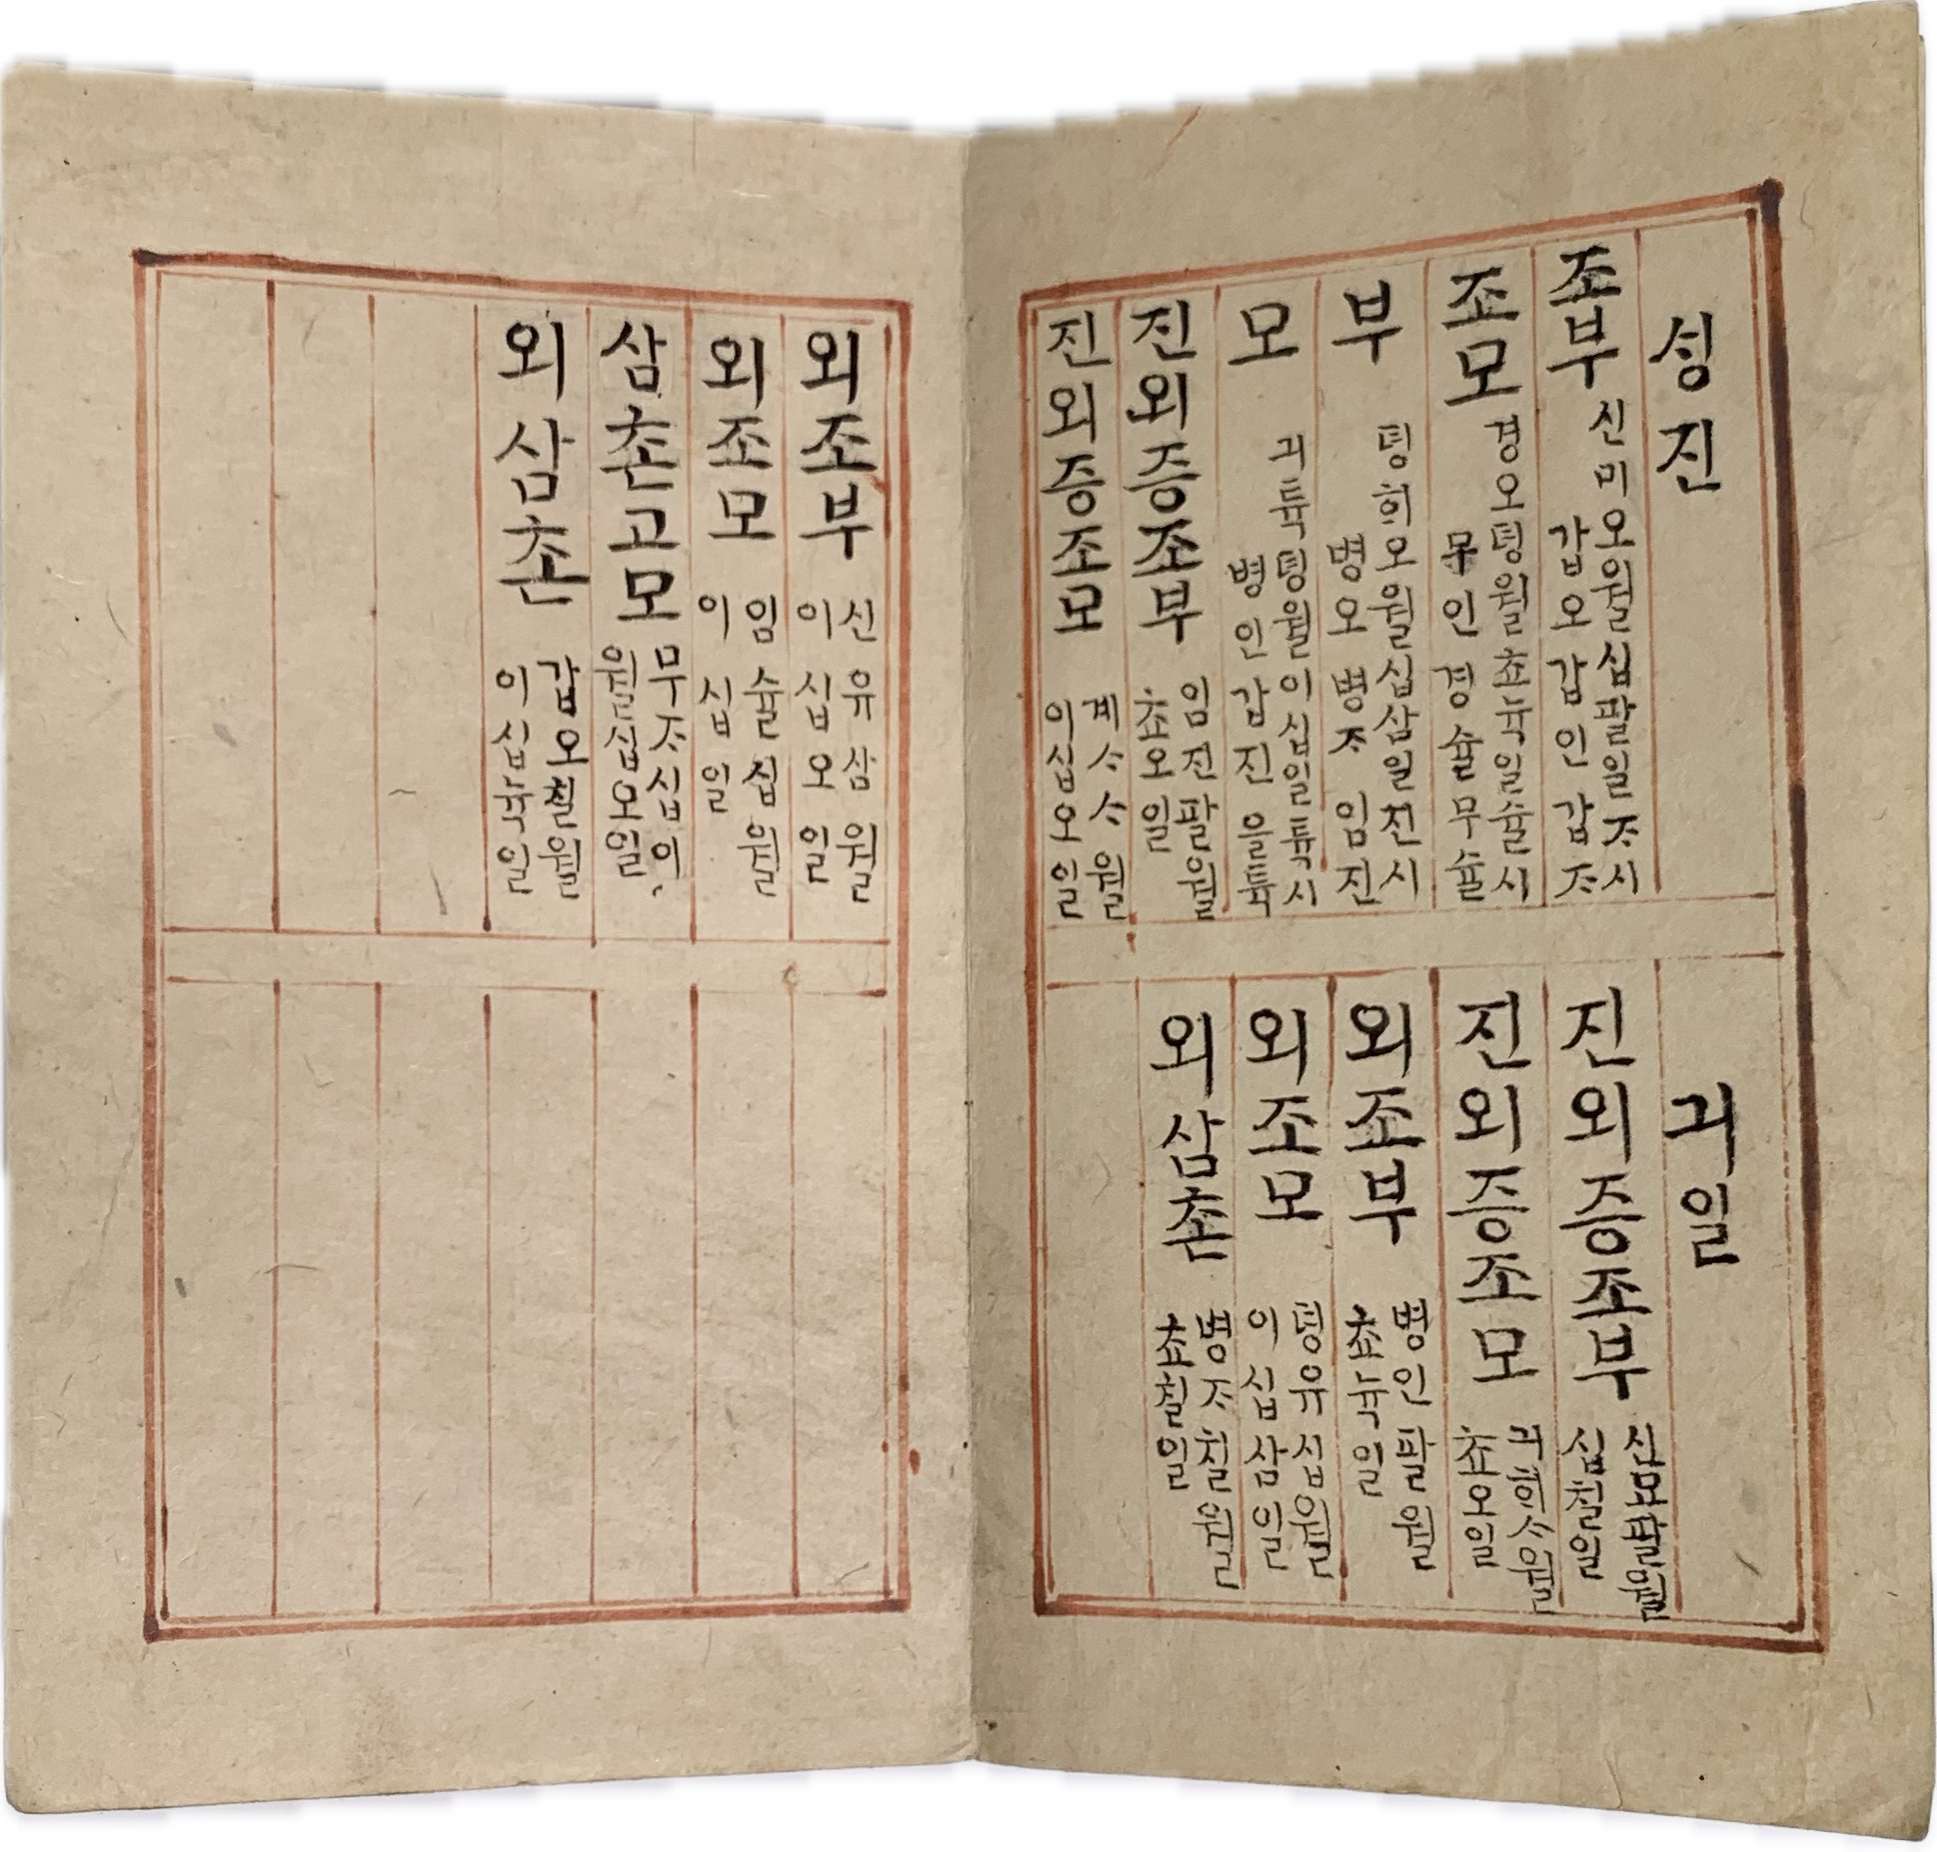 셩진
죠부
신미오월십팔일ᄌᆞ시
갑오갑인갑ᄌᆞ
죠모
경오뎡월쵸뉵일슐시
무인경슐무슐
부
뎡ᄒᆡ오월십삼일진시
병오병ᄌᆞ임진
모
긔튝뎡월이십일튝시
병인갑진을튝
진외증조부
임진팔월
쵸오일
진외증조모
계ᄉᆞᄉᆞ월
이십오일
긔일
진외증조부
신묘팔월
십칠일
진외증조모
긔ᄒᆡᄉᆞ월
쵸오일
외죠부
병인팔월
쵸뉵일
외조모
뎡유십월
이십삼일
외삼촌
병ᄌᆞ칠월
쵸칠일
외조부
신유삼월
이십오일
외조모
임슐십월
이십일
삼촌고모
무ᄌᆞ십이
월십오일
외삼촌
갑오칠월
이십뉵일